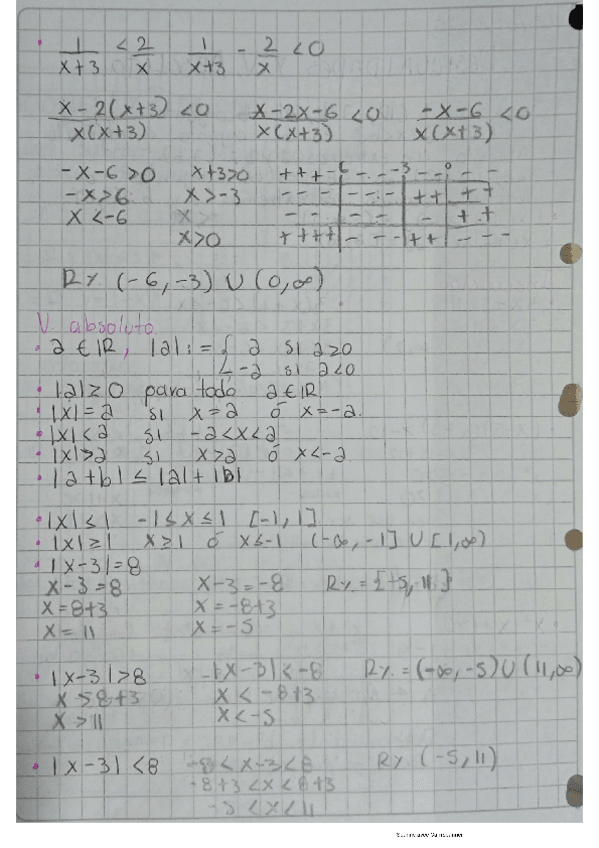 • 1/(x+3) < 2/x   1/(x+3) - 2/x < 0
(x-2(x+3))/(x(x+3)) < 0   (x-2x-6)/(x(x+3)) < 0   (-x-6)/(x(x+3)) < 0
-x-6>0   x+3>0   +++ -6 - - - -3 - - 0 - -
-x>6   x>-3   - - - | - - - | ++ | ++
x<-6   x   - - | - - | - | ++
x>0   ++++ | - - - | ++ | - - -
R// (-6,-3) ∪ (0,∞)
V. absoluto
• a ∈ ℝ, |a| := { a si a≥0
-a si a<0
• |a| ≥ 0 para todo a ∈ ℝ.
• |x| = a si x=a ó x=-a.
• |x| < a si -a<x<a
• |x| > a si x>a ó x<-a
• |a+b| ≤ |a|+|b|
• |x| ≤ 1   -1≤x≤1   [-1,1]
• |x| ≥ 1   x≥1 ó x≤-1   (-∞,-1] ∪ [1,∞)
• |x-3|=8
x-3=8   x-3=-8   R//. = {-5, 11}
x=8+3   x=-8+3
x=11   x=-5
• |x-3|>8   -|x-3|<-8   R//. = (-∞,-5) ∪ (11,∞)
x>8+3   x<-8+3
x>11   x<-5
• |x-3|<8   -8<x-3<8   R// (-5,11)
-8+3<x<8+3
-5<x<11